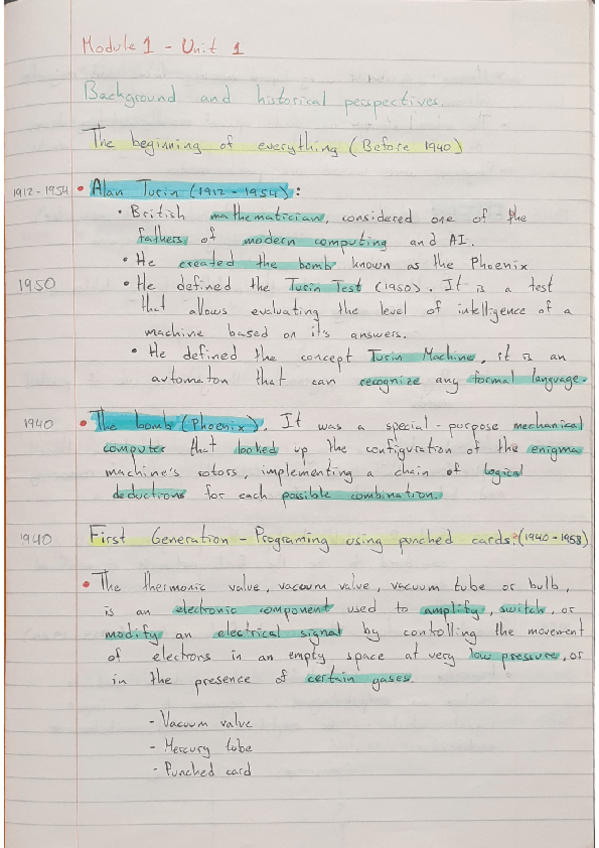 Module 1 - Unit 1
Background and historical perspectives.
The beginning of everything (Before 1940)
1912-1954 • Alan Turin (1912-1954):
• British mathematician, considered one of the
fathers of modern computing and AI.
• He created the bomb known as the Phoenix
1950 • He defined the Turin Test (1950). It is a test
that allows evaluating the level of intelligence of a
machine based on it's answers.
• He defined the concept Turin Machine, it is an
automaton that can recognize any formal language.
1940 • The bomb (Phoenix). It was a special-purpose mechanical
computer that looked up the configuration of the enigma
machine's rotors, implementing a chain of logical
deductions for each possible combination.
1940 First Generation - Programing using punched cards: (1940-1958)
• The thermonic valve, vacuum valve, vacuum tube or bulb,
is an electronic component used to amplify, switch, or
modify an electrical signal by controlling the movement
of electrons in an empty space at very low pressure, or
in the presence of certain gases.
- Vacuum valve
- Mercury tube
- Punched card